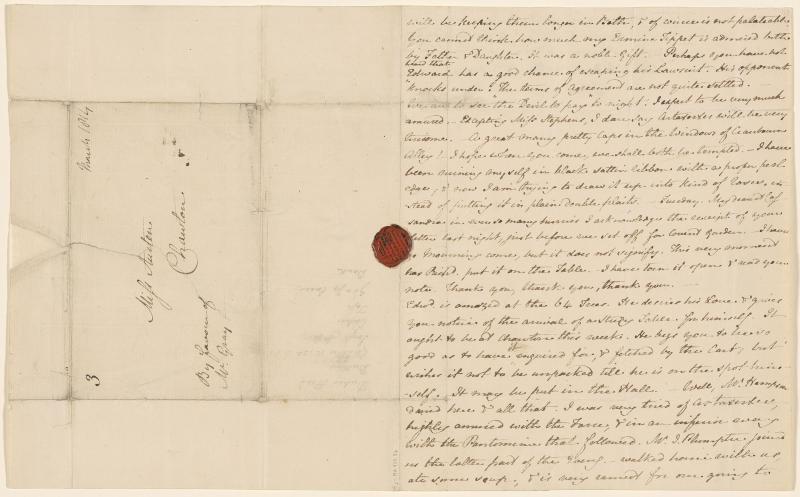 March 1814
Miss Austen
Chawton
By favour of
Mr. Gray
3
will be keeping three longer in Bath, & of course is not palatable.
You cannot think how much my Ermine Tippet is admired both
by Father & Daughter. It was a noble Gift. – Perhaps you have not
heard that
Edward has a good chance of escaping his Lawsuit. His opponent
"knocks under." The terms of agreement are not quite settled. –
We are to see "the Devil to pay" to night. I expect to be very much
amused. – Excepting Miss Stephens, I dare say Artaxerxes will be very
tiresome. – A great many pretty Caps in the Windows of Cranbourn
Alley! – I hope when you come, we shall both be tempted. – I have
been ruining myself in black sattin ribbon with a proper perl
edge; & now I am trying to draw it up into kind of roses, in-
stead of putting it in plain double plaits. – Tuesday. My dearest Cas-
sandra in ever so many hurries I acknowledge the receipt of your
letter last night, just before we set off for Covent Garden. – I have
no Mourning come, but it does not signify. This very moment
has Richd. put it on the Table. – I have torn it open & read your
note. Thank you, thank you, thank you. –
Edwd. is amazed at the 64 Trees. He desires his Love & gives
you notice of the arrival of a Study Table for himself. It
ought to be at Chawton this week. He begs you to be so
good as to have it enquired for, & fetched by the Cart; but
wishes it not to be unpacked till he is on the spot him-
-self. It may be put in the Hall. – Well, Mr. Hampson
dined here & all that. I was very tired of Artaxerxes,
highly amused with the Farce, & in an inferior way
with the Pantomime that followed. Mr. J. Plumptre joined
us the latter part of the Eveng. – walked home with us,
ate some soup, & is very earnest for our going to